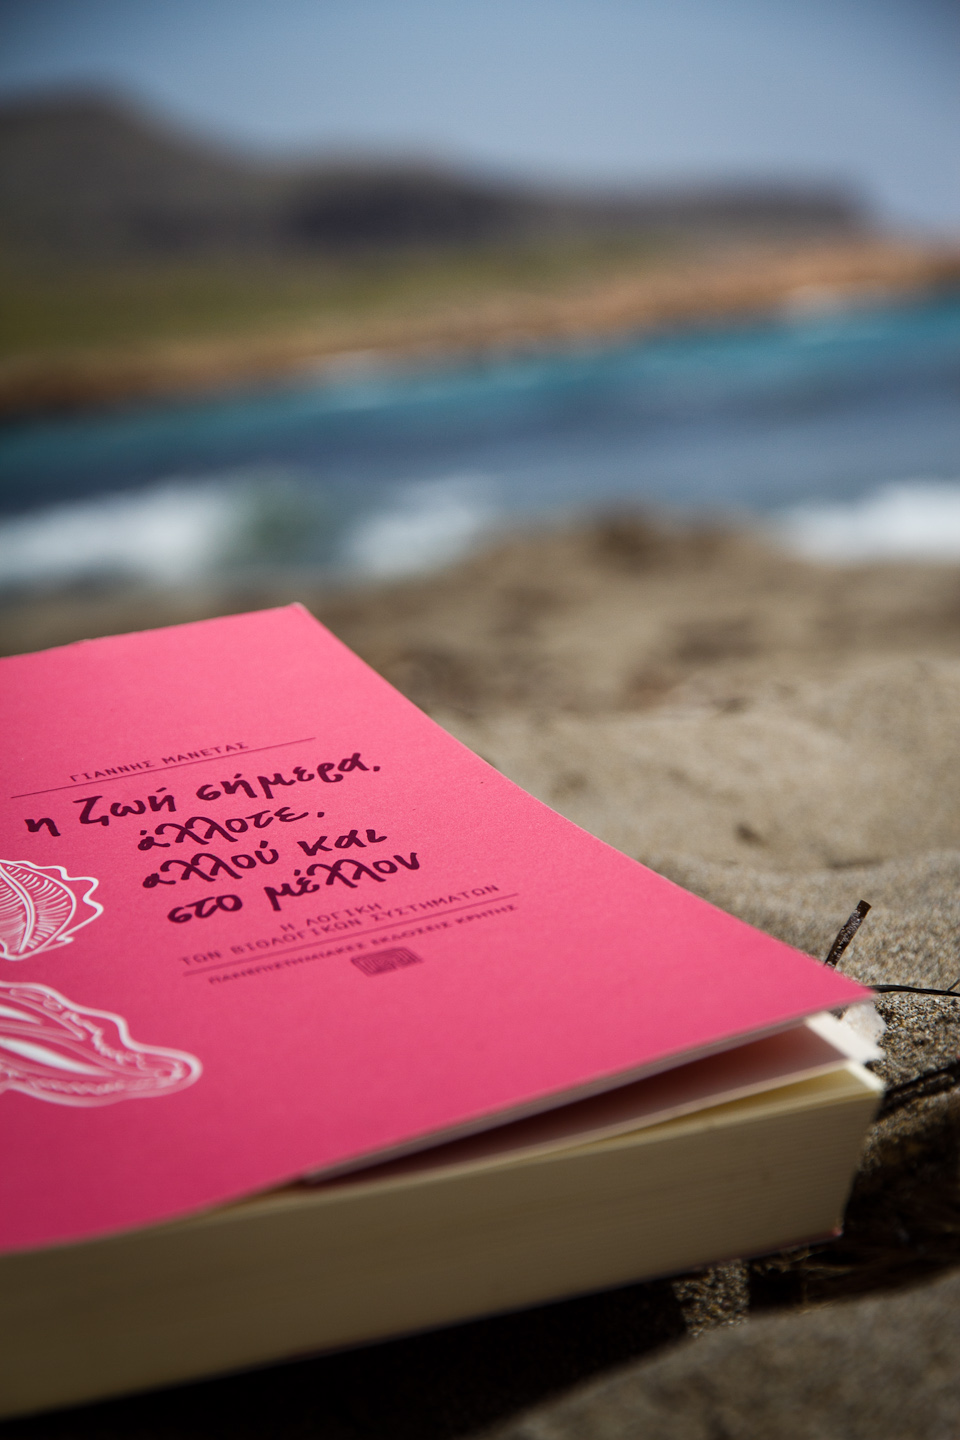 ΓΙΑΝΝΗΣ ΜΑΝΕΤΑΣ
η ζωή σήμερα,
άλλοτε,
αλλού και
στο μέλλον
Η ΛΟΓΙΚΗ
ΤΩΝ ΒΙΟΛΟΓΙΚΩΝ ΣΥΣΤΗΜΑΤΩΝ
ΠΑΝΕΠΙΣΤΗΜΙΑΚΕΣ ΕΚΔΟΣΕΙΣ ΚΡΗΤΗΣ